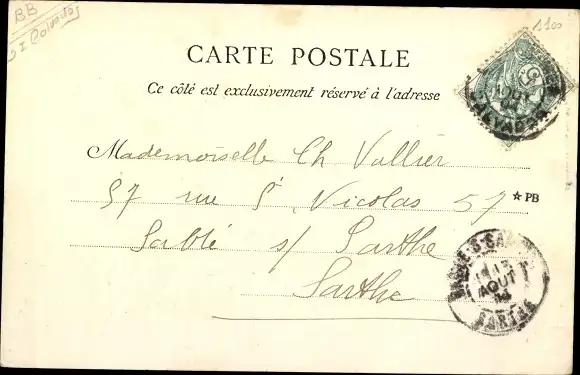 BB
CARTE POSTALE
Ce côté est exclusivement réservé à l'adresse
Mademoiselle Ch Vallier
57 rue St Nicolas 57
★ PB
Sablé s/ Sarthe
Sarthe
AOUT
CALVADOS
13
AOUT
04
SARTHE